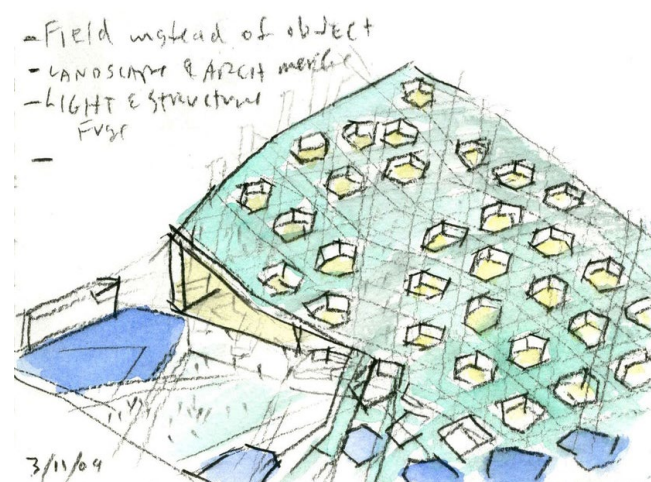 - Field instead of object
- LANDSCAPE & ARCH merge
- LIGHT & structure
Fuse
-
3/11/09